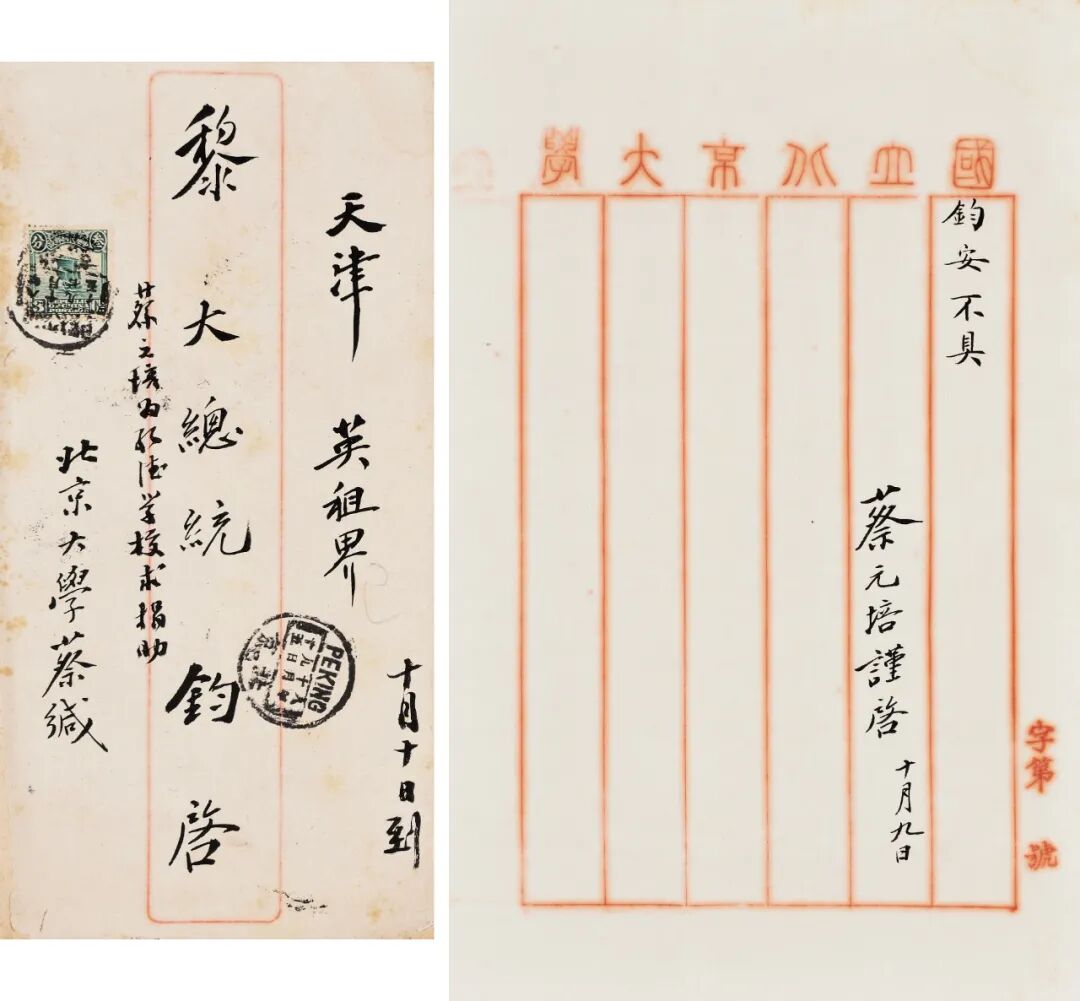 天津 英租界
十月十日到
黎大總統鈞啓
蔡元培为孔德学校求捐助
北京大學蔡緘
PEKING
北京
分 叁
國立北京大學
鈞安不具
蔡元培謹啓 十月九日
字第 號